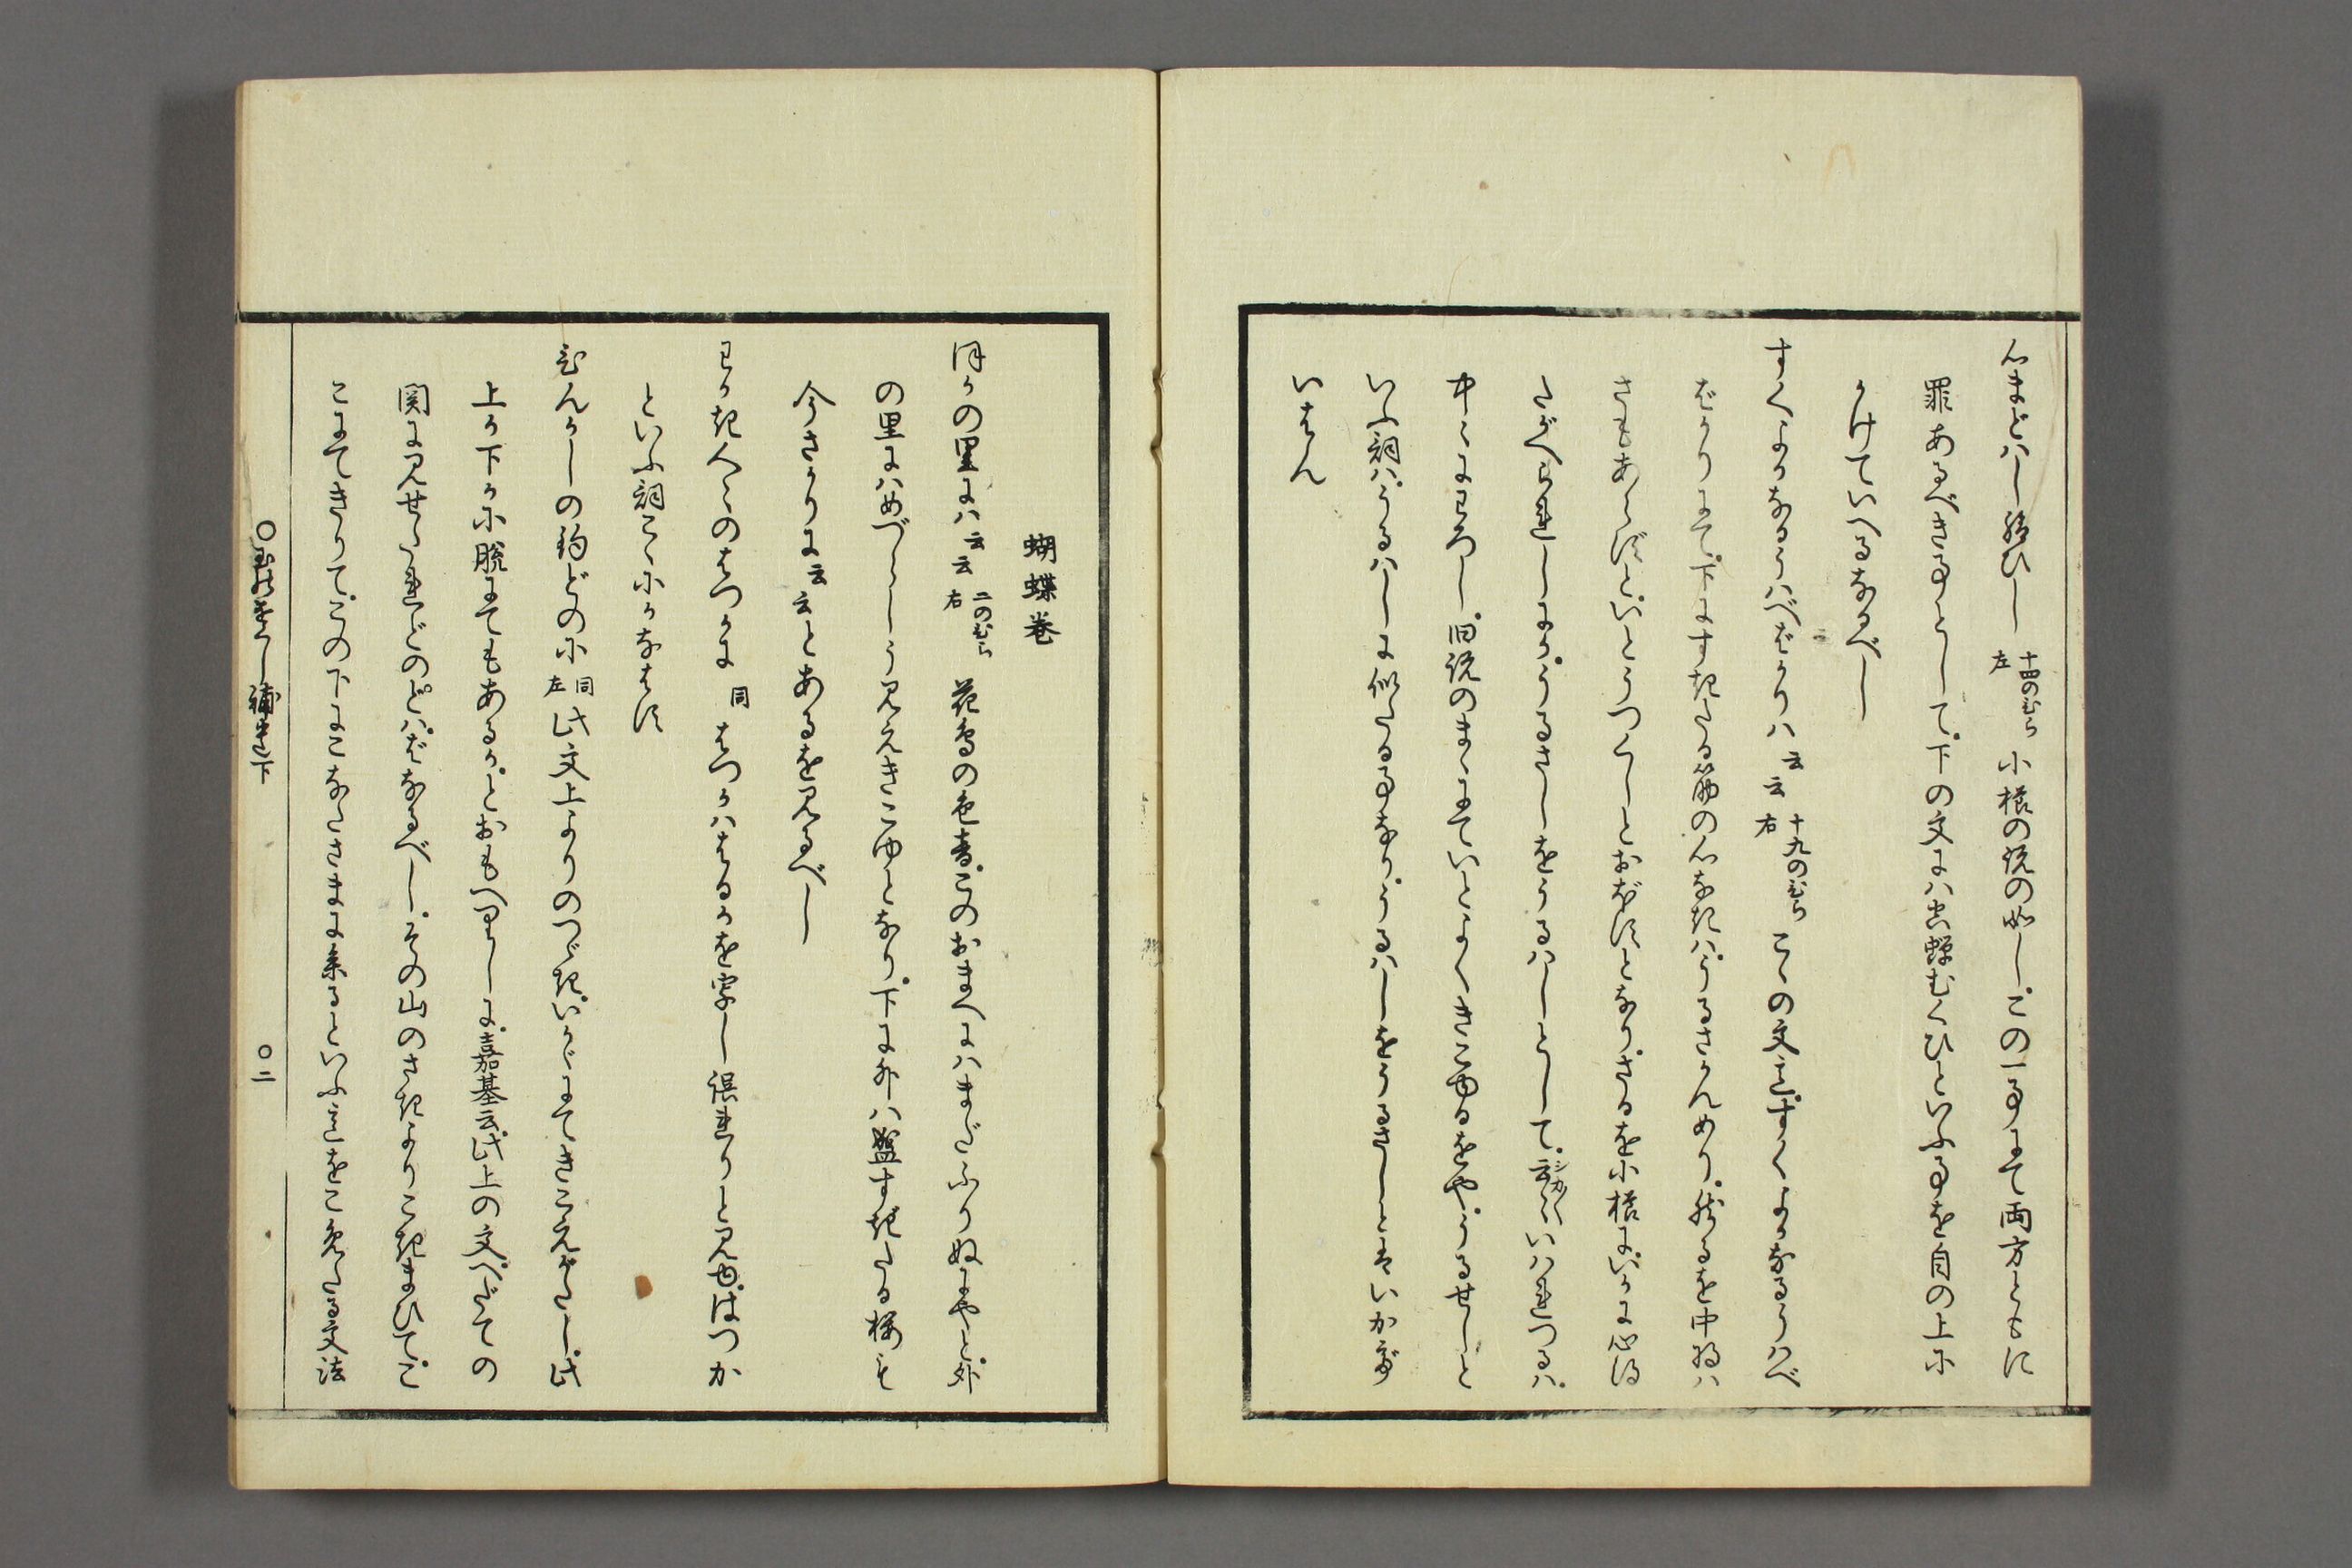 心まどハし給ひし 十四のひら左 小櫛の説の如し。この一事にて両方ともに
罪あるべき事として。下の文にハ空蝉むくひといふ事を自の上に
かけていへるなるべし
すくよかなるうハべばかりハ 云云 十九のひら右 こゝの文意。すくよかなるうハべ
ばかりにて。下にすきたる筋の心なきハ。うるさかんめり。然るを中将ハ
さもあらずと。いとうつくしとおぼすとなり。さるを小櫛に。いかに心得
たがへられしにか。うるさしをうるハしとして。云々いハれつるハ。
中々にわろし。旧説のまゝにていとよくきこゆるをや。うるせしと
いふ詞ハ。うるハしに似たる事なり。うるハしをうるさしとはいかでか
いはん
蝴蝶巻
ほかの里にハ 云云 二のひら右 花鳥の色音。このおまへにハまだふりぬにやと。外
の里にハめづらしう見えきこゆとなり。下に外ハ盛すぎたる桜も
今さかりに云云とあるを見るべし
わかき人々のはつかに 同 はつかハはるかを写し誤れりと見ゆ。はつか
といふ詞こゝにかなはず
ひんがしの釣どのに 同左 此文上よりのつゞき。いかゞにてきこえがたし。此
上か下かに脱にてもあるか。とおもへりしに。嘉基云。此上の文。へだての
関に見せたれどのどハ。ばなるべし。その山のさきよりこぎまひて。こ
こにてきりて。この下にこなたさまに来るといふ意をこめたる文法
○玉の小くし補遺下 ○二